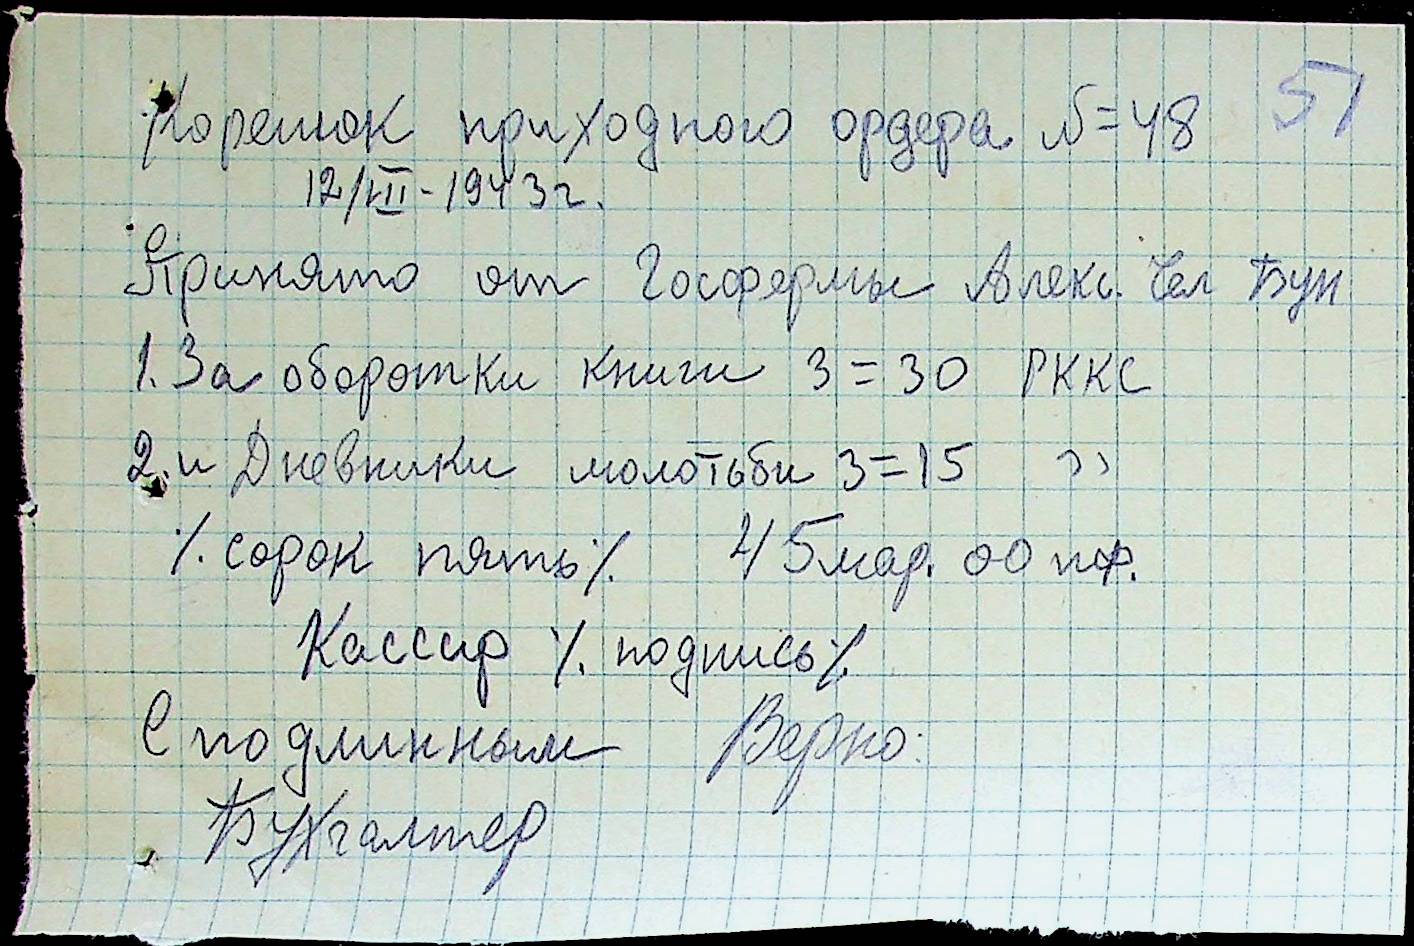 Корешок приходного ордера №=48 51
12/VIII-1943 г.
Принято от Госфермы Алекс. Чел Бун
1. За оборотки книги 3=30 РККС
2. и Дневники молотьби 3=15 ››
%. сорок пять %. 45 мар. 00 пф.
Кассир %. подпись %.
С подлинным Верно:
Бухгалтер